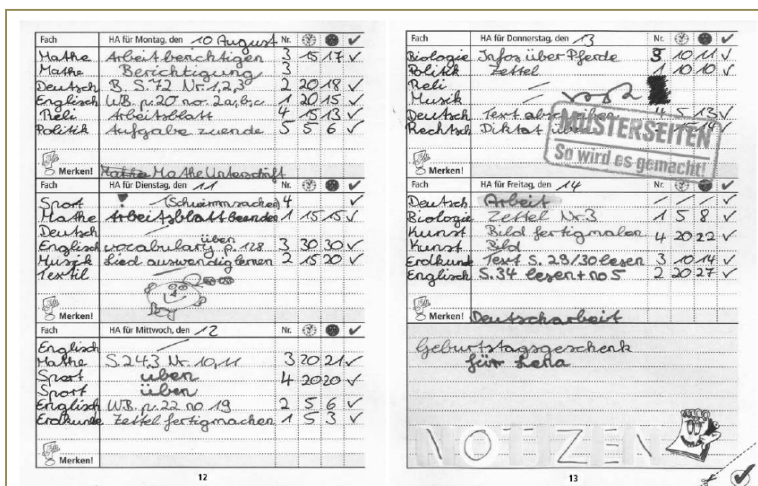 Fach HA für Montag, den 10 August Nr.
Mathe Arbeit berichtigen 3 15 17 ✓
Mathe Berichtigung 3
Deutsch B. S. 72 Nr. 1,2,3 2 20 18 ✓
Englisch WB. p. 20 no. 2a,b,c 1 20 15 ✓
Reli Arbeitsblatt 4 15 13 ✓
Politik Aufgabe zuende 5 5 6 ✓
Merken! Mathe Mathe Unterschrift
Fach HA für Dienstag, den 11 Nr.
Sport ! (Schwimmsachen) 4 ✓
Mathe Arbeitsblatt beenden 1 15 15 ✓
Deutsch
Englisch vocabulary p. 128 üben 3 30 30 ✓
Musik Lied auswendig lernen 2 15 20 ✓
Textil
Merken!
Fach HA für Mittwoch, den 12 Nr.
Englisch
Mathe S. 243 Nr. 10, 11 3 20 21 ✓
Sport üben 4 20 20 ✓
Sport üben
Englisch WB. p. 22 no 19 2 5 6 ✓
Erdkunde Zettel fertigmachen 1 5 3 ✓
Merken!
12
Fach HA für Donnerstag, den 13 Nr.
Biologie Infos über Pferde 10 11 ✓
Politik Zettel 1 10 10 ✓
Reli
Musik
Deutsch Text 4 5 13 ✓
Rechtsch Diktat
MUSTERSEITEN
So wird es gemacht!
Merken!
Fach HA für Freitag, den 14 Nr.
Deutsch Arbeit ✓
Biologie Zettel Nr. 3 1 5 8 ✓
Kunst Bild fertigmalen 4 20 22 ✓
Kunst Bild
Erdkunde Text S. 29/30 lesen 3 10 14 ✓
Englisch S. 34 lesen + no 5 2 20 27 ✓
Merken! Deutscharbeit
Geburtstagsgeschenk
für Lena
NOTIZEN
13